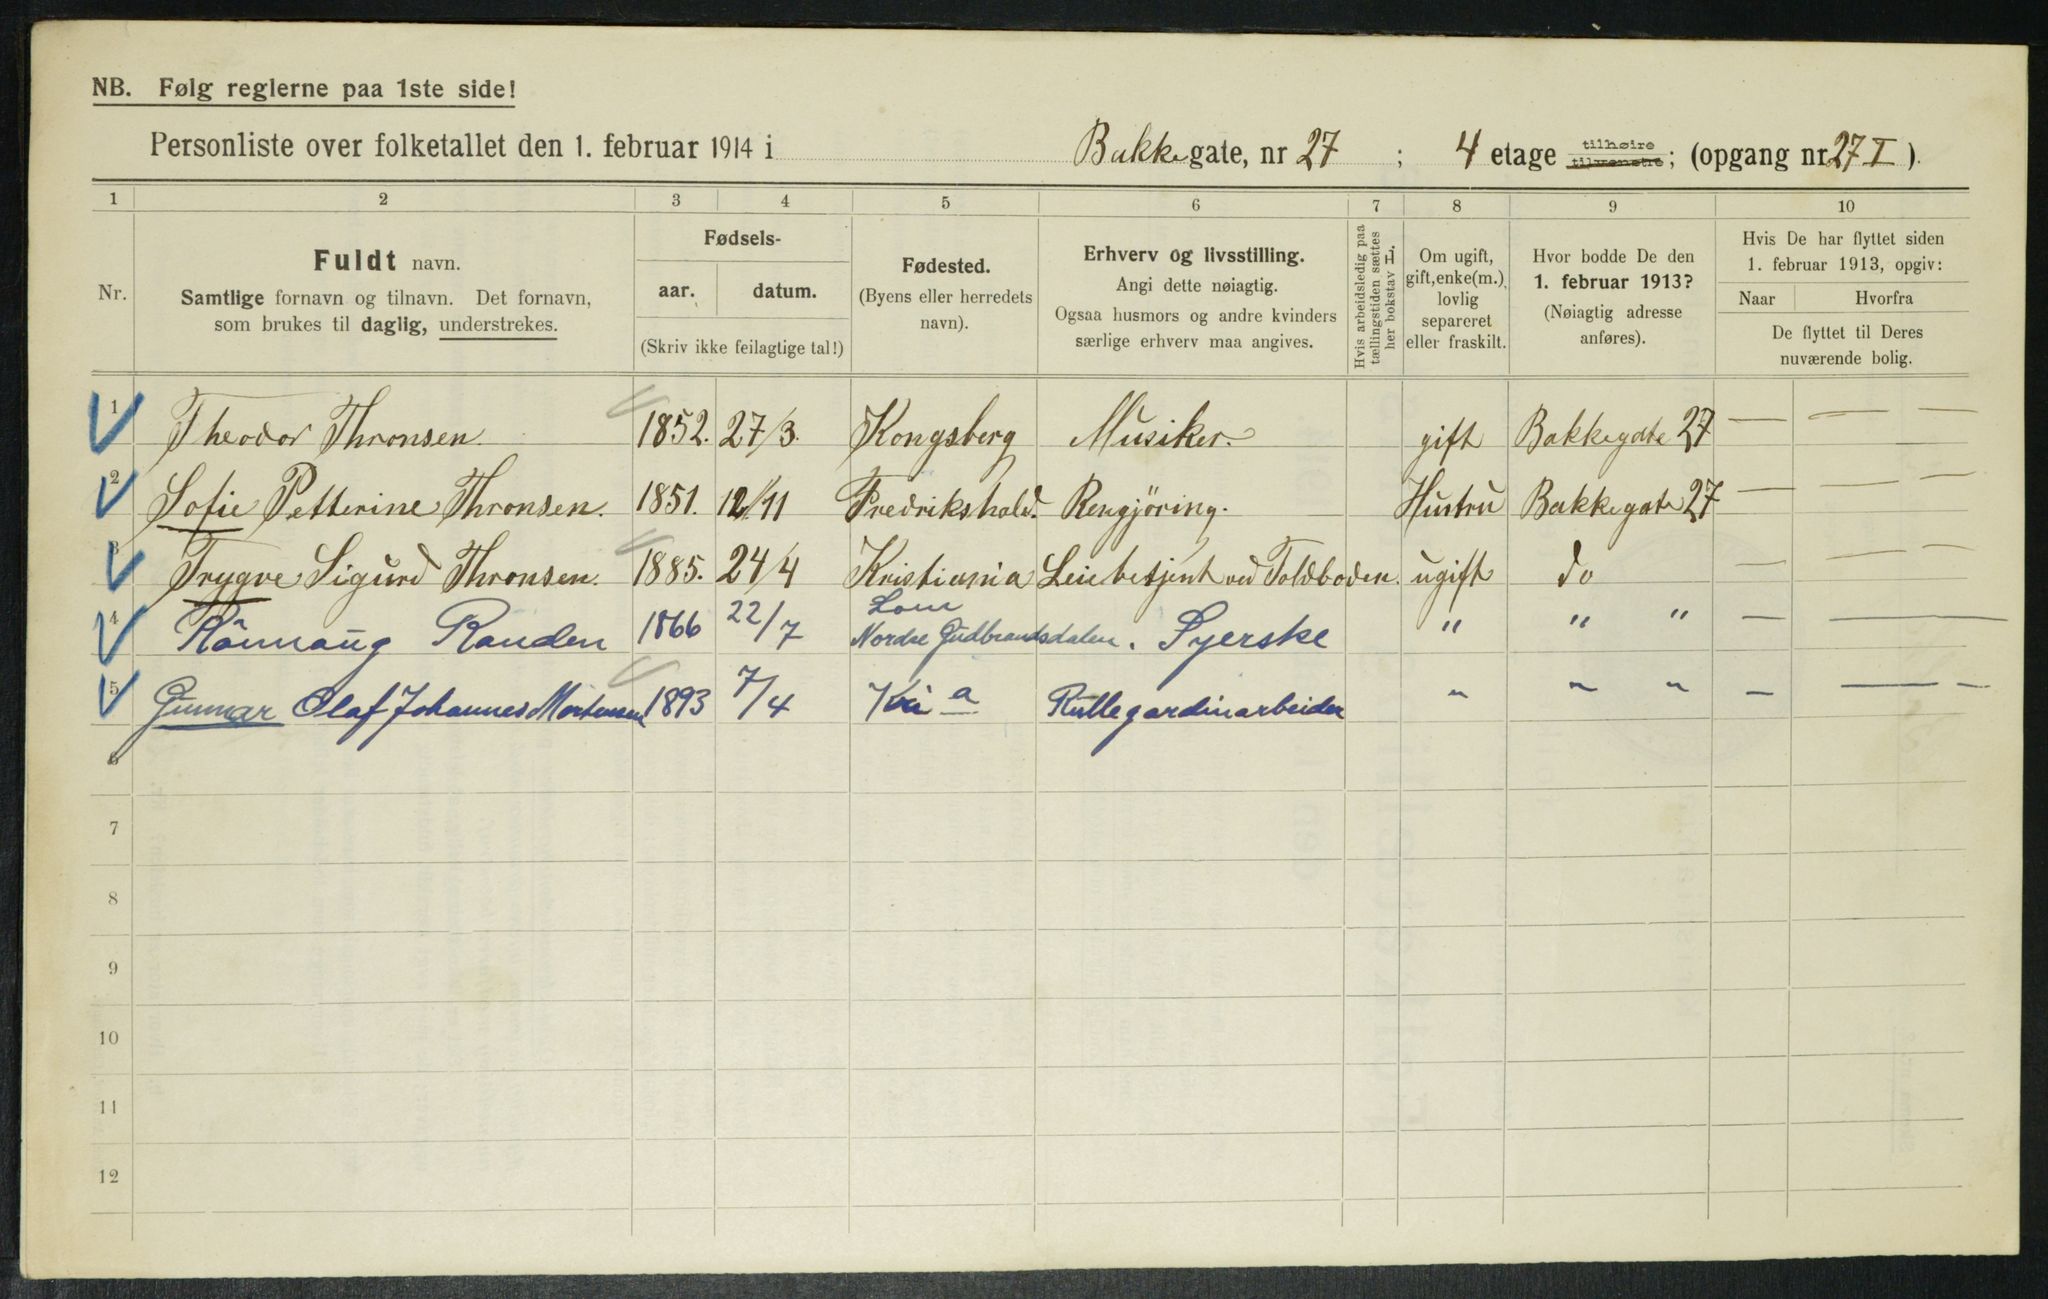 NB. Følg reglerne paa 1ste side!
Personliste over folketallet den 1. februar 1914 i Bakkegate, nr 27 ; 4 etage tilhøire tilvenstre; (opgang nr 27 I ).
1 2 3 4 5 6 7 8 9 10
Nr.
Fuldt navn.
Samtlige fornavn og tilnavn. Det fornavn,
som brukes til daglig, understrekes.
Fødsels-
aar. datum.
(Skriv ikke feilagtige tal!)
Fødested.
(Byens eller herredets
navn).
Erhverv og livsstilling.
Angi dette nøiagtig.
Ogsaa husmors og andre kvinders
særlige erhverv maa angives.
Hvis arbeidsledig paa
tællingstiden sættes
her bokstav L.
Om ugift,
gift, enke(m.),
lovlig
separeret
eller fraskilt.
Hvor bodde De den
1. februar 1913?
(Nøiagtig adresse
anføres).
Hvis De har flyttet siden
1. februar 1913, opgiv:
Naar Hvorfra
De flyttet til Deres
nuværende bolig.
1 Theodor Thronsen. 1852. 27/3. Kongsberg Musiker. gift Bakkegate 27 — — —
2 Sofie Petterine Thronsen. 1851. 12/11 Fredrikshald. Rengjöring. Hustru Bakkegate 27 — — —
3 Trygve Sigurd Thronsen. 1885. 24/4 Kristiania Leiebetjent ved Toldboden. ugift do — — —
4 Rönnaug Randen 1866 22/7 Lom
Nordre Gudbrandsdalen. Syerske " " " — —
5 Gunnar Olaf Johannes Mortensen 1893 7/4 Kria Rullegardinarbeider " " " — — —
6
7
8
9
10
11
12